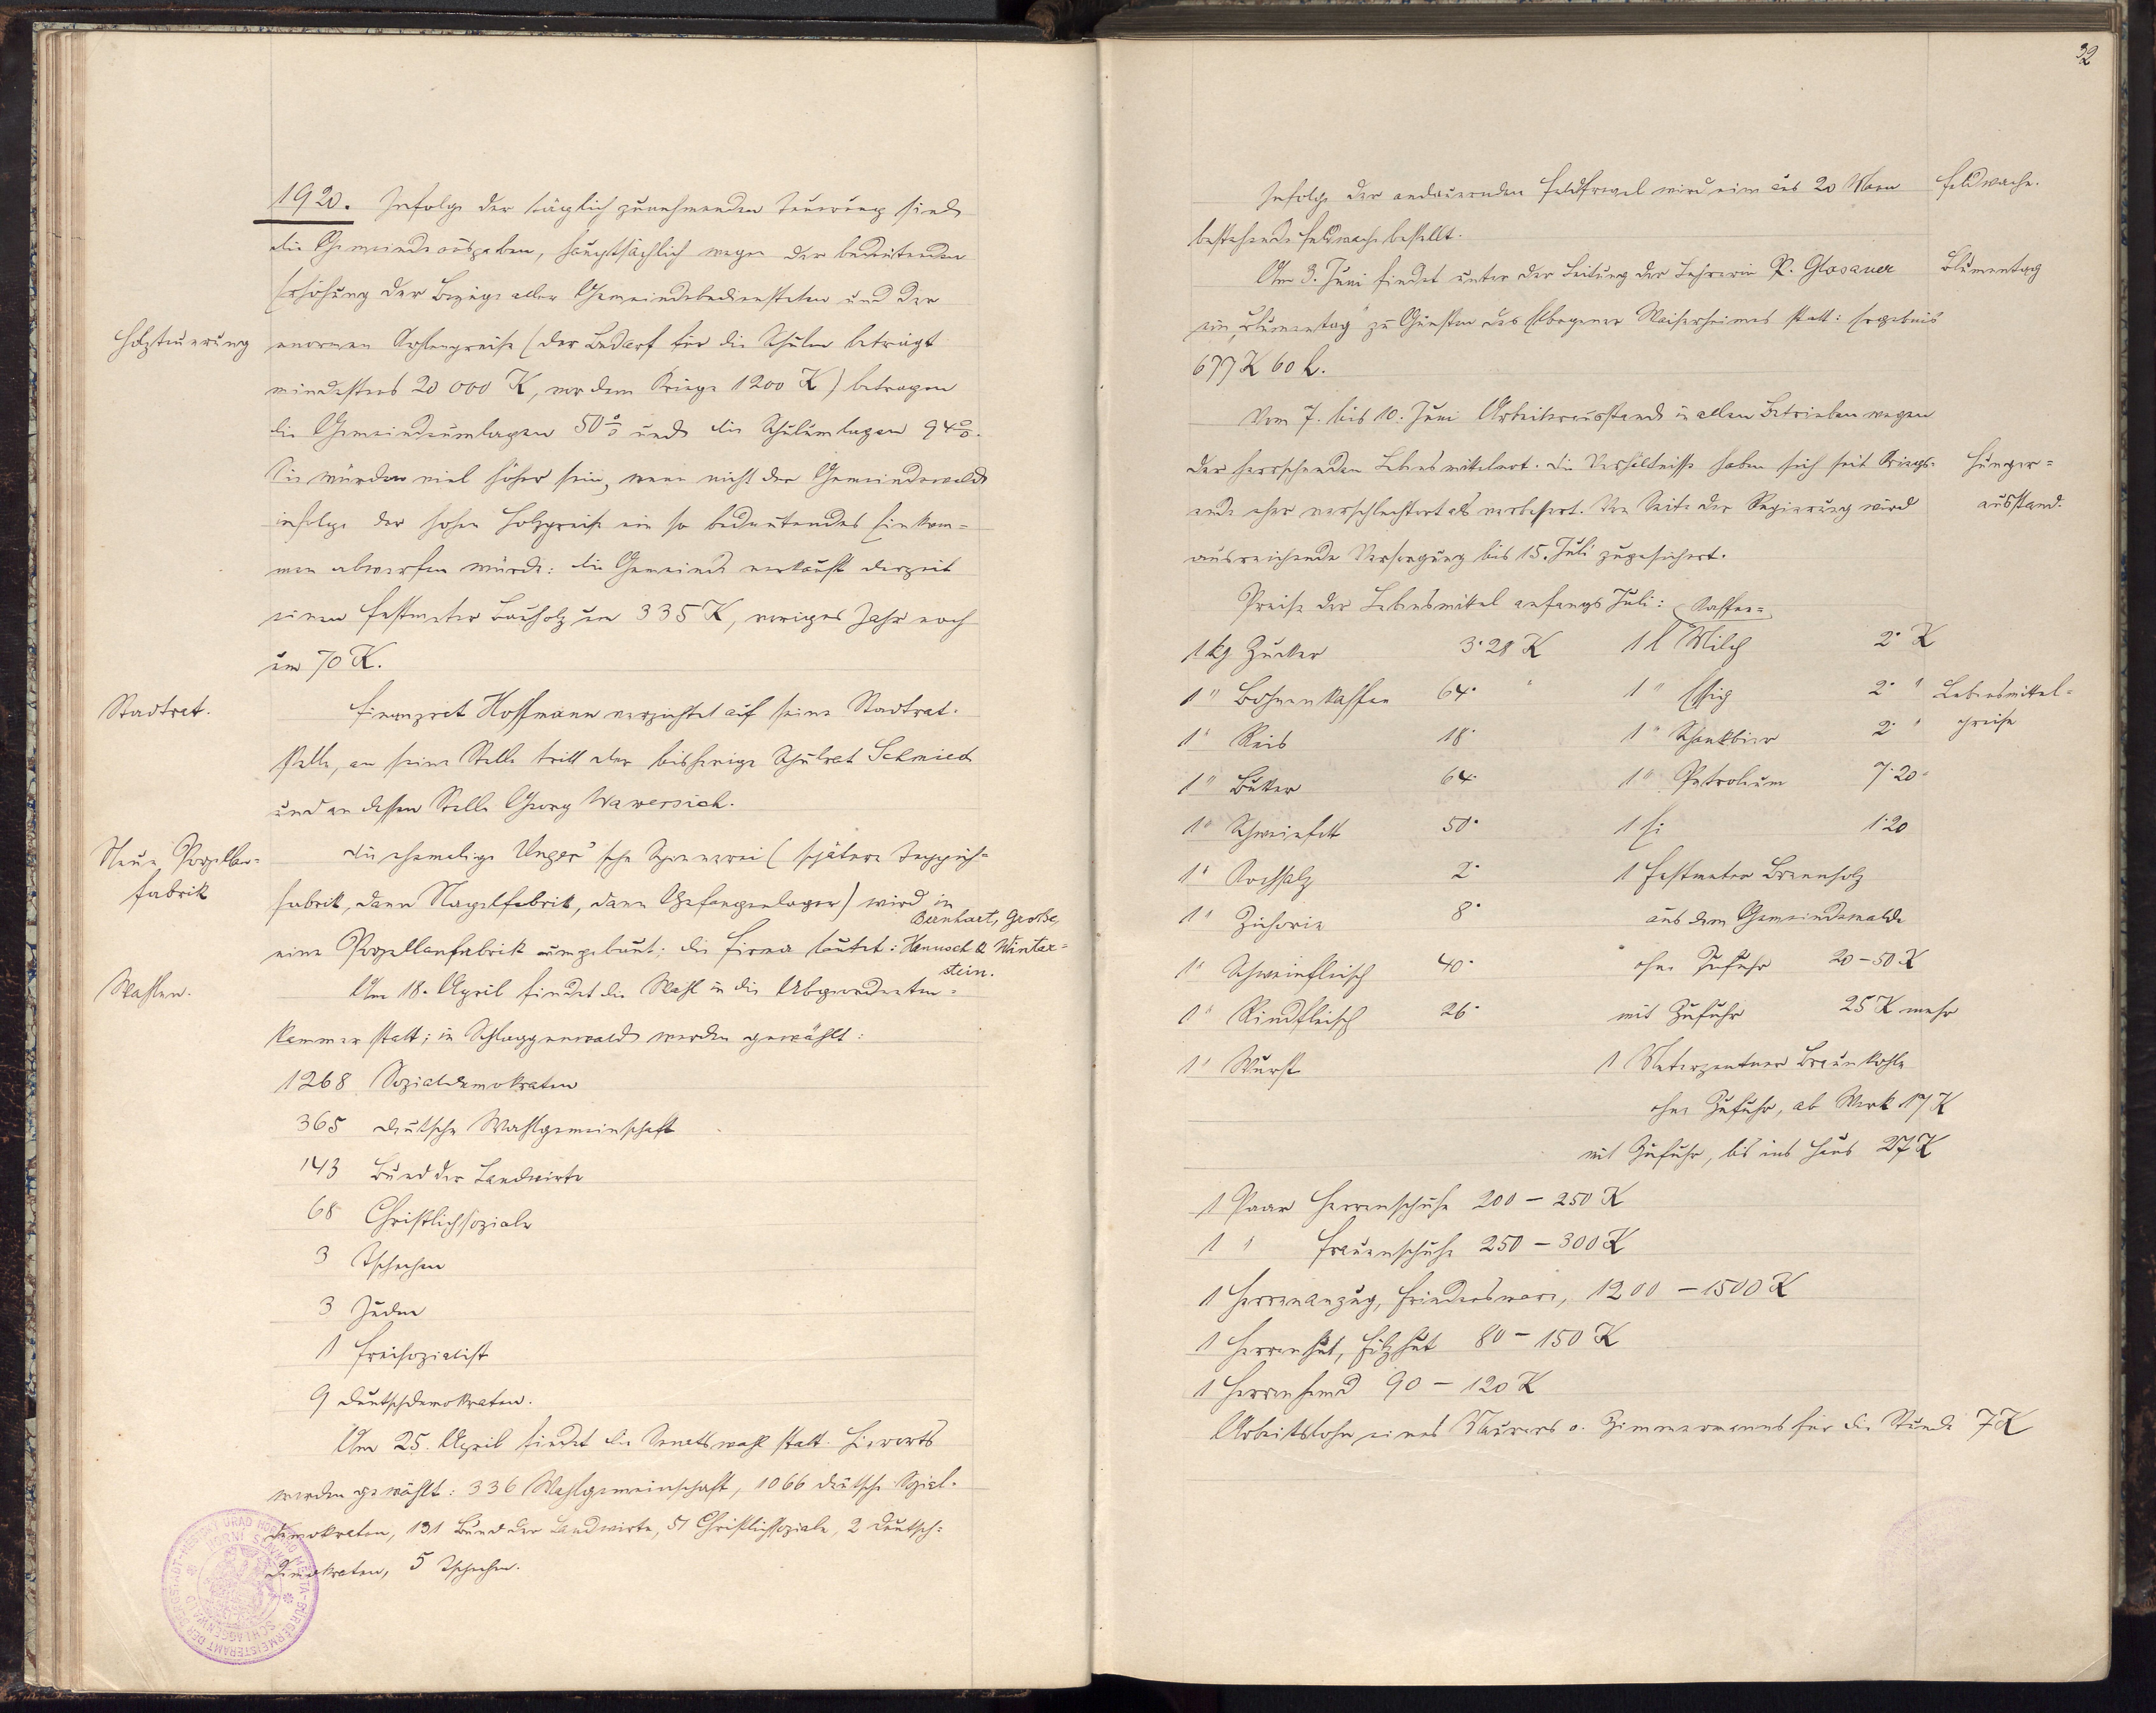 1920. Infolge der täglich zunehmenden Teuerung sind
die Gemeindeausgaben, hauptsächlich wegen der bedeutenden
Erhöhung der Bezüge aller Gemeindebediensteten und der
Holzteuerung
enormen Kohlenpreise (der Bedarf für die Schulen beträgt
mindestens 20 000 K, vor dem Kriege 1200 K) betragen
die Gemeindeumlagen 50% und die Schulumlagen 94%.
Sie würden viel höher sein, wenn nicht der Gemeindewald
infolge der hohen Holzpreise ein so bedeutendes Einkom=
men abwerfen würde: die Gemeinde verkauft derzeit
einen Festmeter Bauholz um 335 K, voriges Jahr noch
um 70 K.
Stadtrat.
Finanzrat Hoffmann verzichtet auf seine Stadtrat=
stelle, an seine Stelle tritt der bisherige Schulrat Schmied
und an dessen Stelle Georg Wawersich.
Neue Porzellan=
fabrik
Die ehemalige Unger'sche Spinnerei (spätere Teppich=
fabrik, dann Nagelfabrik, dann Gefangenlager) wird in
eine Porzellanfabrik umgebaut; die Firma lautet: Bernhart, Große,
Hanusch & Winter=
stein.
Wahlen.
Am 18. April findet die Wahl in die Abgeordneten=
kammer statt; in Schlaggenwald werden gewählt:
1268 Sozialdemokraten
365 deutsche Wahlgemeinschaft
143 Bund der Landwirte
68 Christlichsoziale
3 Tschechen
3 Juden
1 Freisozialist
9 Deutschdemokraten.
Am 25. April findet die Senatswahl statt. Hierorts
werden gewählt: 336 Wahlgemeinschaft, 1066 deutsche Sozial=
demokraten, 131 Bund der Landwirte, 51 Christlichsoziale, 2 Deutsch=
demokraten, 5 Tschechen.
32
Infolge der andauernden Feldfrevel wird eine aus 20 Mann
Feldwache.
bestehende Feldwache bestellt.
Am 3. Juni findet unter der Leitung der Lehrerin R. Glasauer
Blumentag
ein „Blumentag" zu Gunsten des Elbogener Waisenheimes statt: Ergebnis
677 K 60 h.
Vom 7. bis 10. Juni Arbeiterausstand in allen Betrieben wegen
der herrschenden Lebensmittelnot. Die Verhältnisse haben sich seit Kriegs=
Hunger=
ausstand.
ende eher verschlechtert als verbessert. Von Seite der Regierung wird
ausreichende Versorgung bis 15. Juli zugesichert.
Preise der Lebensmittel anfangs Juli:
Lebensmittel=
preise
1 kg Zucker 3·28 K 1 l Milch 2· K
1 " Bohnenkaffee 64· " 1 " Essig 2· "
1 " Reis 18· 1 " Schankbier 2· "
1 " Butter 64· 1 " Petroleum 7·20
1 " Schweinfett 50· 1 Ei 1·20
1 " Kochsalz 2· 1 Festmeter Brennholz
1 " Zichorie 8· aus dem Gemeindewalde
1 " Schweinfleisch 40· ohne Zufuhr 20 – 50 K
1 " Rindfleisch 26· mit Zufuhr 25 K mehr
1 " Wurst 1 Meterzentner Braunkohle
ohne Zufuhr, ab Werk 17 K
mit Zufuhr, bis ins Haus 27 K
1 Paar Herrenschuhe 200 – 250 K
1 " Frauenschuhe 250 – 300 K
1 Herrenanzug, Friedensware, 1200 – 1500 K
1 Herrenhut, Filzhut 80 – 150 K
1 Herrenhemd 90 – 120 K
Arbeitslohn eines Maurers o. Zimmermanns für die Stunde 7 K